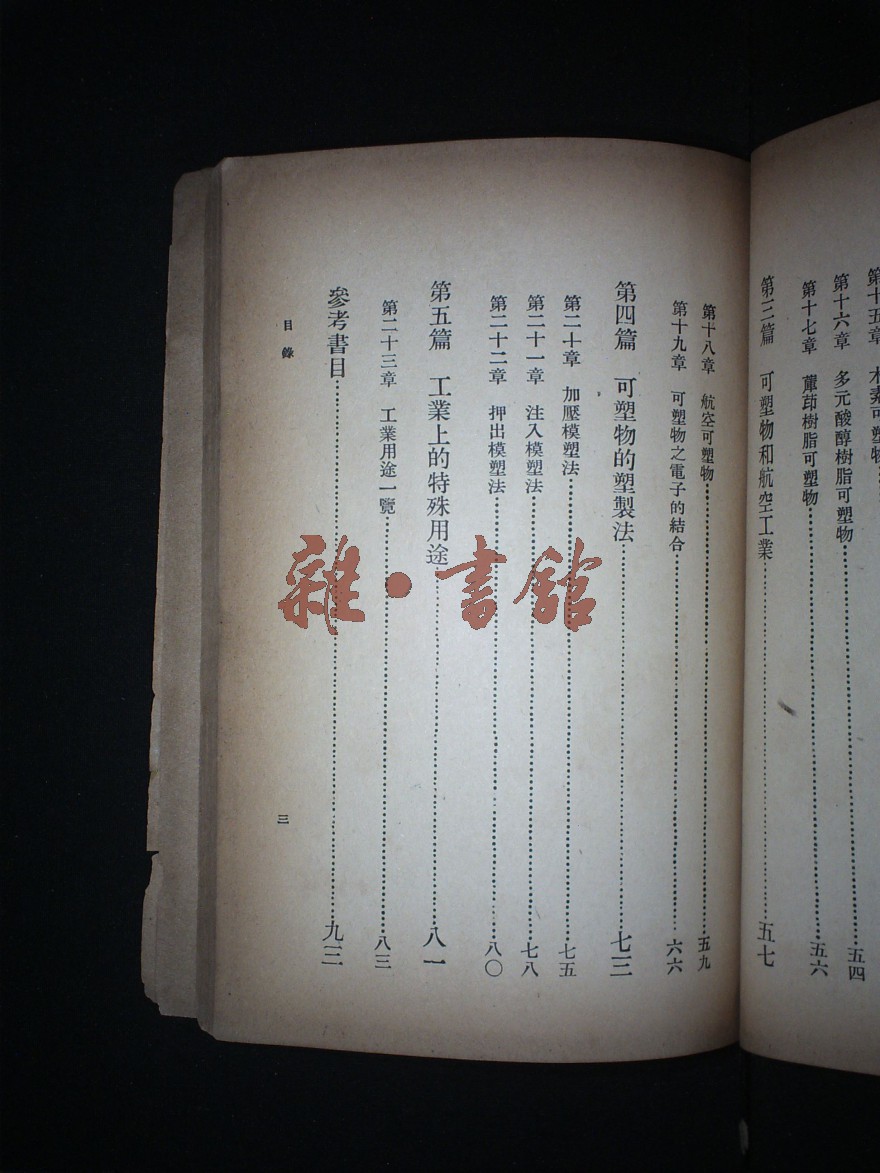 第十五章 木素可塑物
第十六章 多元酸醇樹脂可塑物……五四
第十七章 薰茚樹脂可塑物……五六
第三篇 可塑物和航空工業……五七
第十八章 航空可塑物……五九
第十九章 可塑物之電子的結合……六六
第四篇 可塑物的塑製法……七三
第二十章 加壓模塑法……七五
第二十一章 注入模塑法……七八
第二十二章 押出模塑法……八〇
第五篇 工業上的特殊用途……八一
第二十三章 工業用途一覽……八三
參考書目……九三
目錄
三
雜·書館